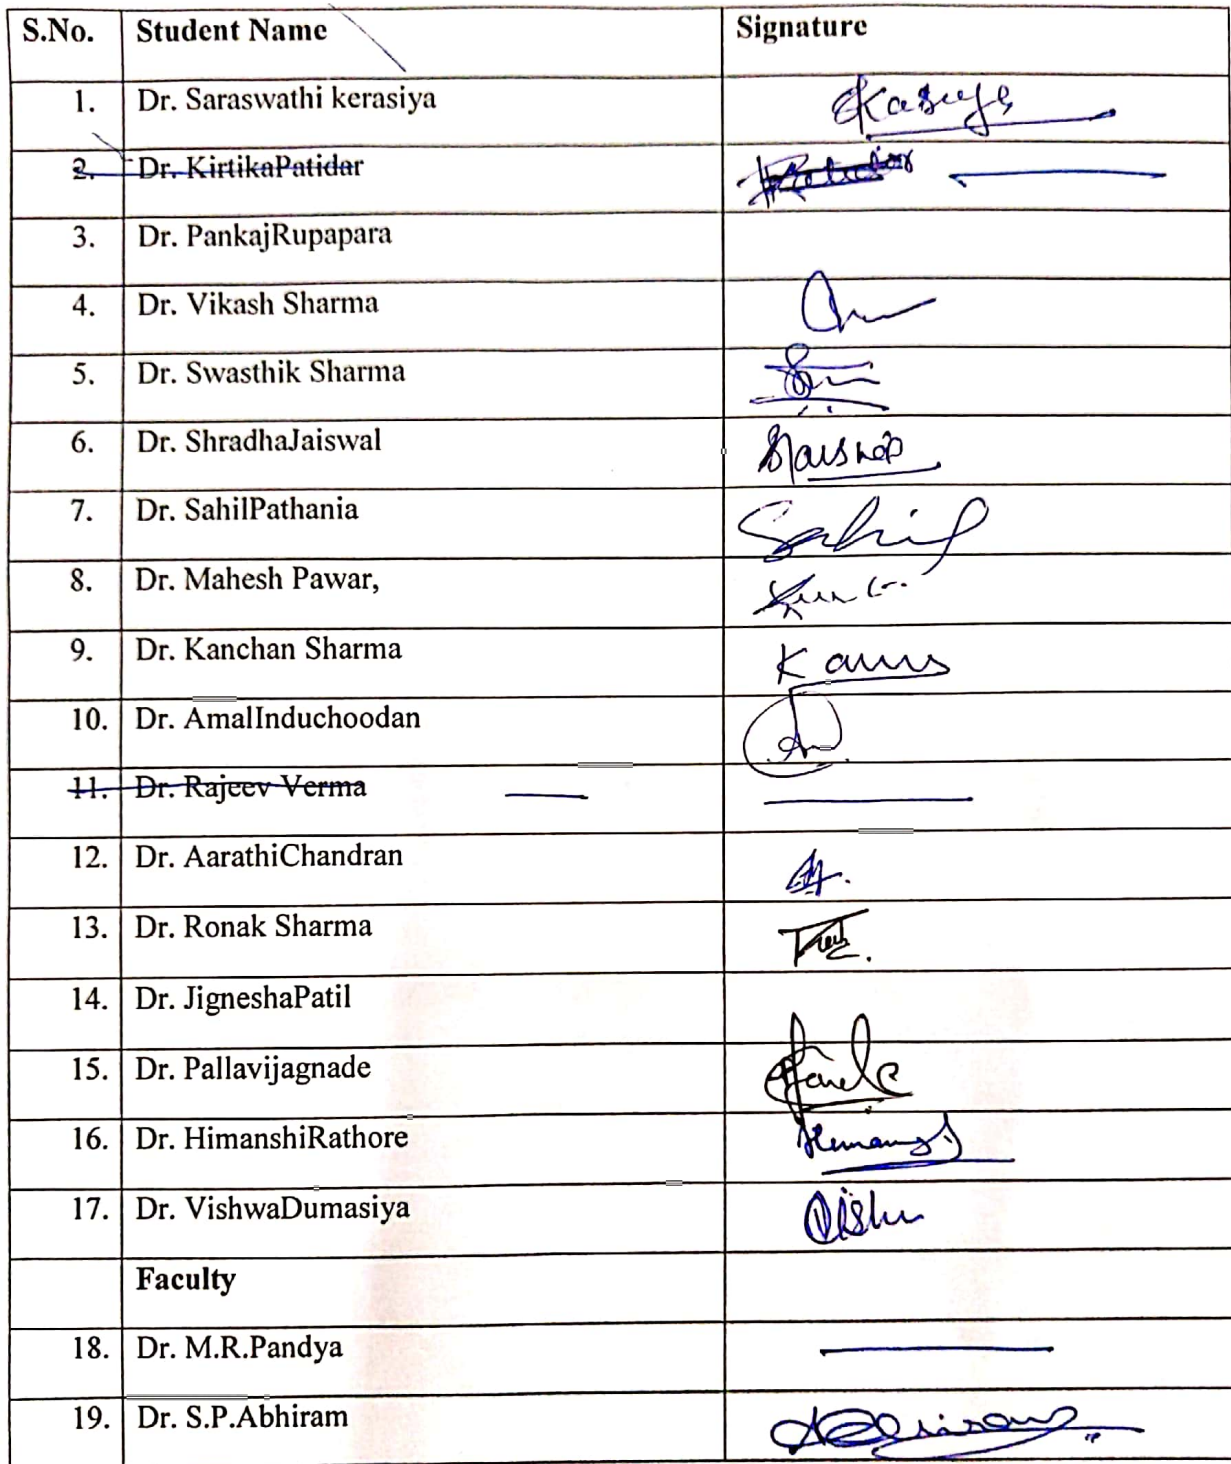 S.No. Student Name Signature
1. Dr. Saraswathi kerasiya
2. Dr. KirtikaPatidar
3. Dr. PankajRupapara
4. Dr. Vikash Sharma
5. Dr. Swasthik Sharma
6. Dr. ShradhaJaiswal
7. Dr. SahilPathania Sahil
8. Dr. Mahesh Pawar,
9. Dr. Kanchan Sharma
10. Dr. AmalInduchoodan
11. Dr. Rajeev Verma
12. Dr. AarathiChandran
13. Dr. Ronak Sharma
14. Dr. JigneshaPatil
15. Dr. Pallavijagnade
16. Dr. HimanshiRathore
17. Dr. VishwaDumasiya
Faculty
18. Dr. M.R.Pandya
19. Dr. S.P.Abhiram